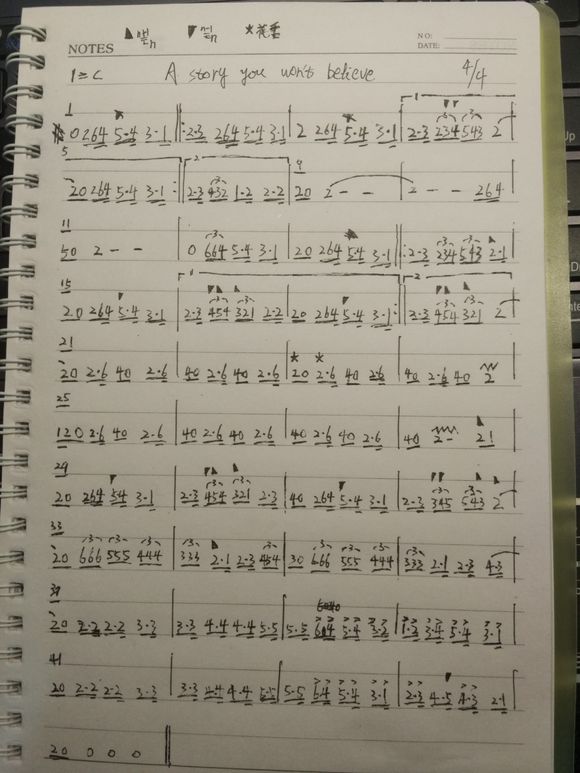 NOTES
NO:
DATE:
1=C A story you won't believe 4/4
1
0 264 5·4 3·1 2·3 264 5·4 3·1 2 264 5·4 3·1 2·3 234 543 2
5 2 9
20 264 5·4 3·1 2·3 432 1·2 2·2 20 2 - - 2 - - 264
11
50 2 - - 0 664 5·4 3·1 20 264 54 3·1 2·3 234 543 2·1
15
20 264 5·4 3·1 2·3 454 321 2·2 20 264 5·4 3·1 2·3 454 321 2
21
20 2·6 40 2·6 40 2·6 40 2·6 20 2·6 40 2·6 40 2·6 40 2
25
120 2·6 40 2·6 40 2·6 40 2·6 40 2·6 40 2·6 40 2- 21
29
20 264 54 3·1 2·3 454 321 2·3 40 264 5·4 3·1 2·3 345 543 2
33
20 666 555 444 333 2·1 2·3 454 30 666 555 444 333 2·1 2·3 4·3
20 2·2 2·2 3·3 3·3 4·4 4·4 5·5 5·5 6·4 5·4 3·2 1·2 3·4 5·4 3·1
41
20 2·2 2·2 3·3 3·3 4·4 4·4 5·5 5·5 6·4 5·4 3·1 2·3 4·5 4·3 2·1
20 0 0 0